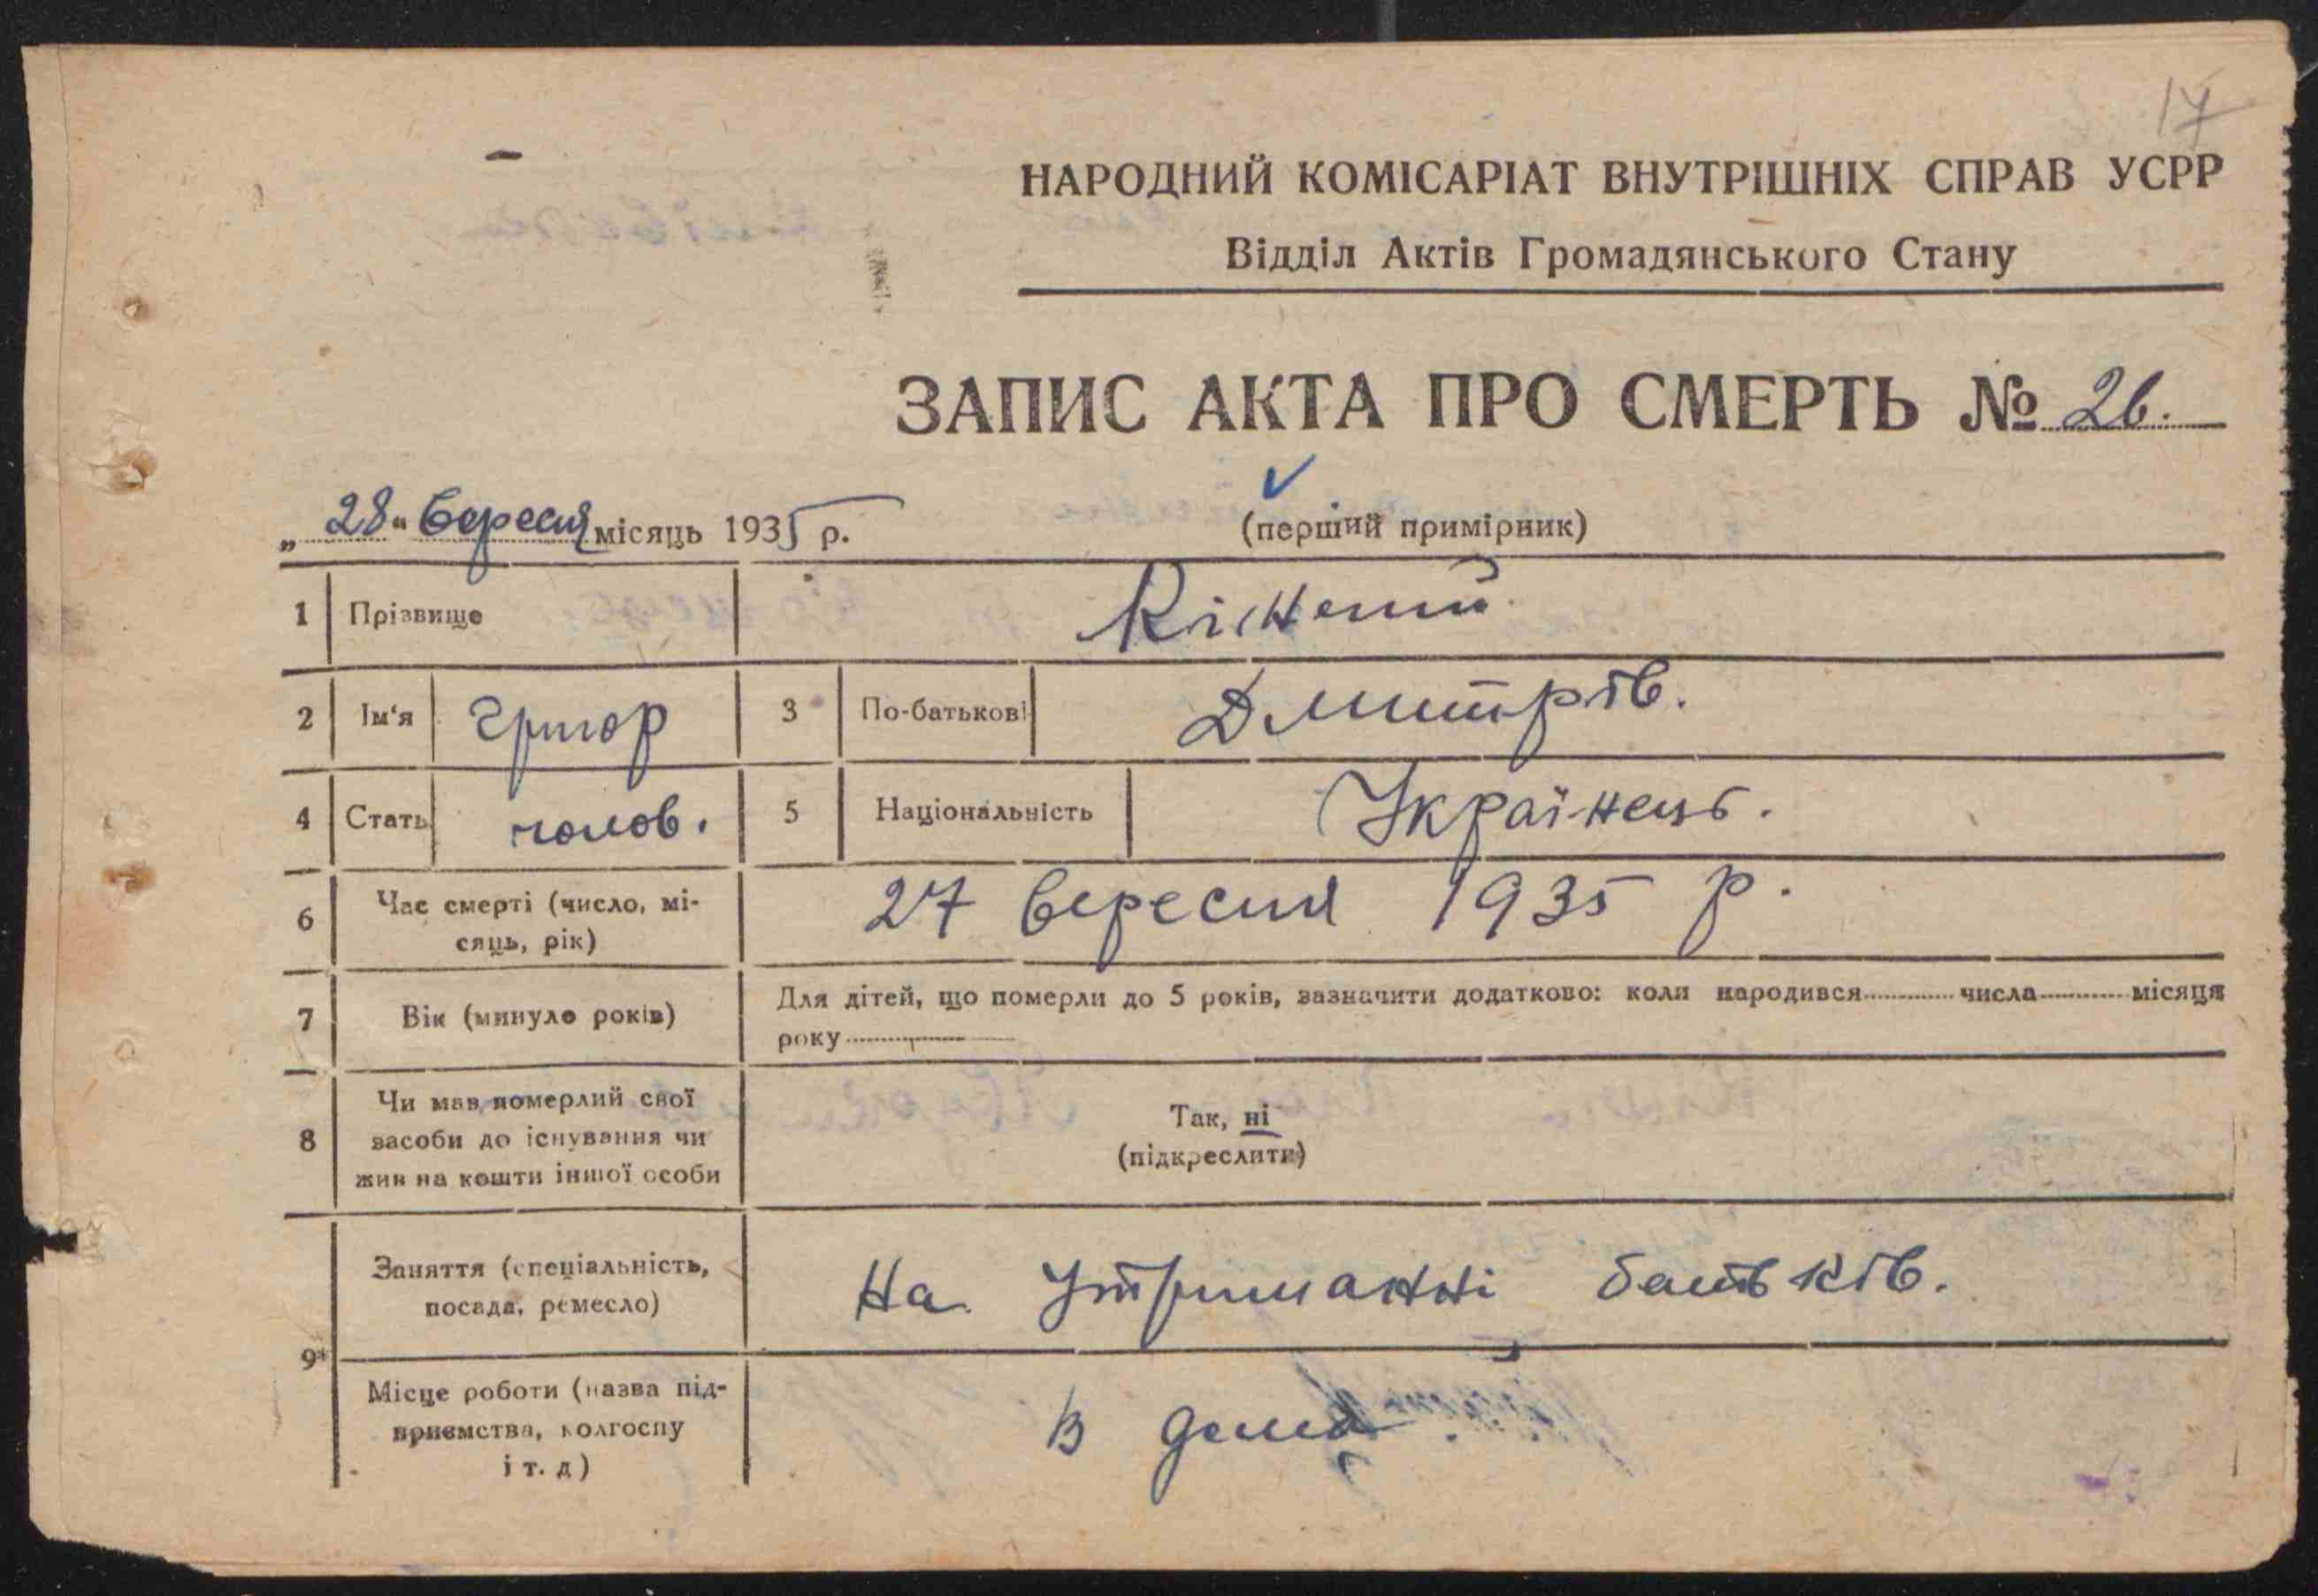 17
НАРОДНИЙ КОМІСАРІАТ ВНУТРІШНІХ СПРАВ УСРР
Відділ Актів Громадянського Стану
ЗАПИС АКТА ПРО СМЕРТЬ № 26.
„28“ Вересня місяць 1935 р.
(перший примірник)
1 Прізвище
2 Ім'я Григор 3 По-батькові Дмитрів.
4 Стать чолов. 5 Національність Українець.
6 Час смерті (число, мі-
сяць, рік) 27 Вересня 1935 р.
7 Вік (минуло років) Для дітей, що померли до 5 років, зазначити додатково: коли народився числа місяця
року
8 Чи мав померлий свої
засоби до існування чи
жив на кошти іншої особи
Так, ні
(підкреслити)
9 Заняття (спеціальність,
посада, ремесло) На утриманні батьків.
Місце роботи (назва під-
приємства, колгоспу
і т. д)
В